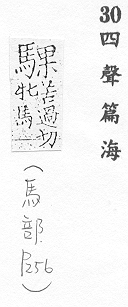 30四聲篇海
騍苦過切
牝馬
(馬部 P256)